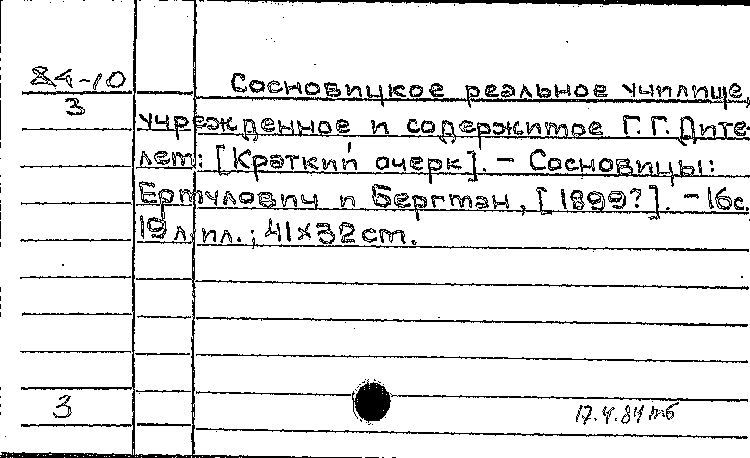 84-10
3
Сосновицкое реальное училище,
учрежденное и содержимое Г. Г. Дите-
лет: [Краткий очерк]. – Сосновицы:
Ертулович и Бергман, [1899?]. – 16с.,
19 л. ил.; 41×32 cm.
3
17.4.84 тб